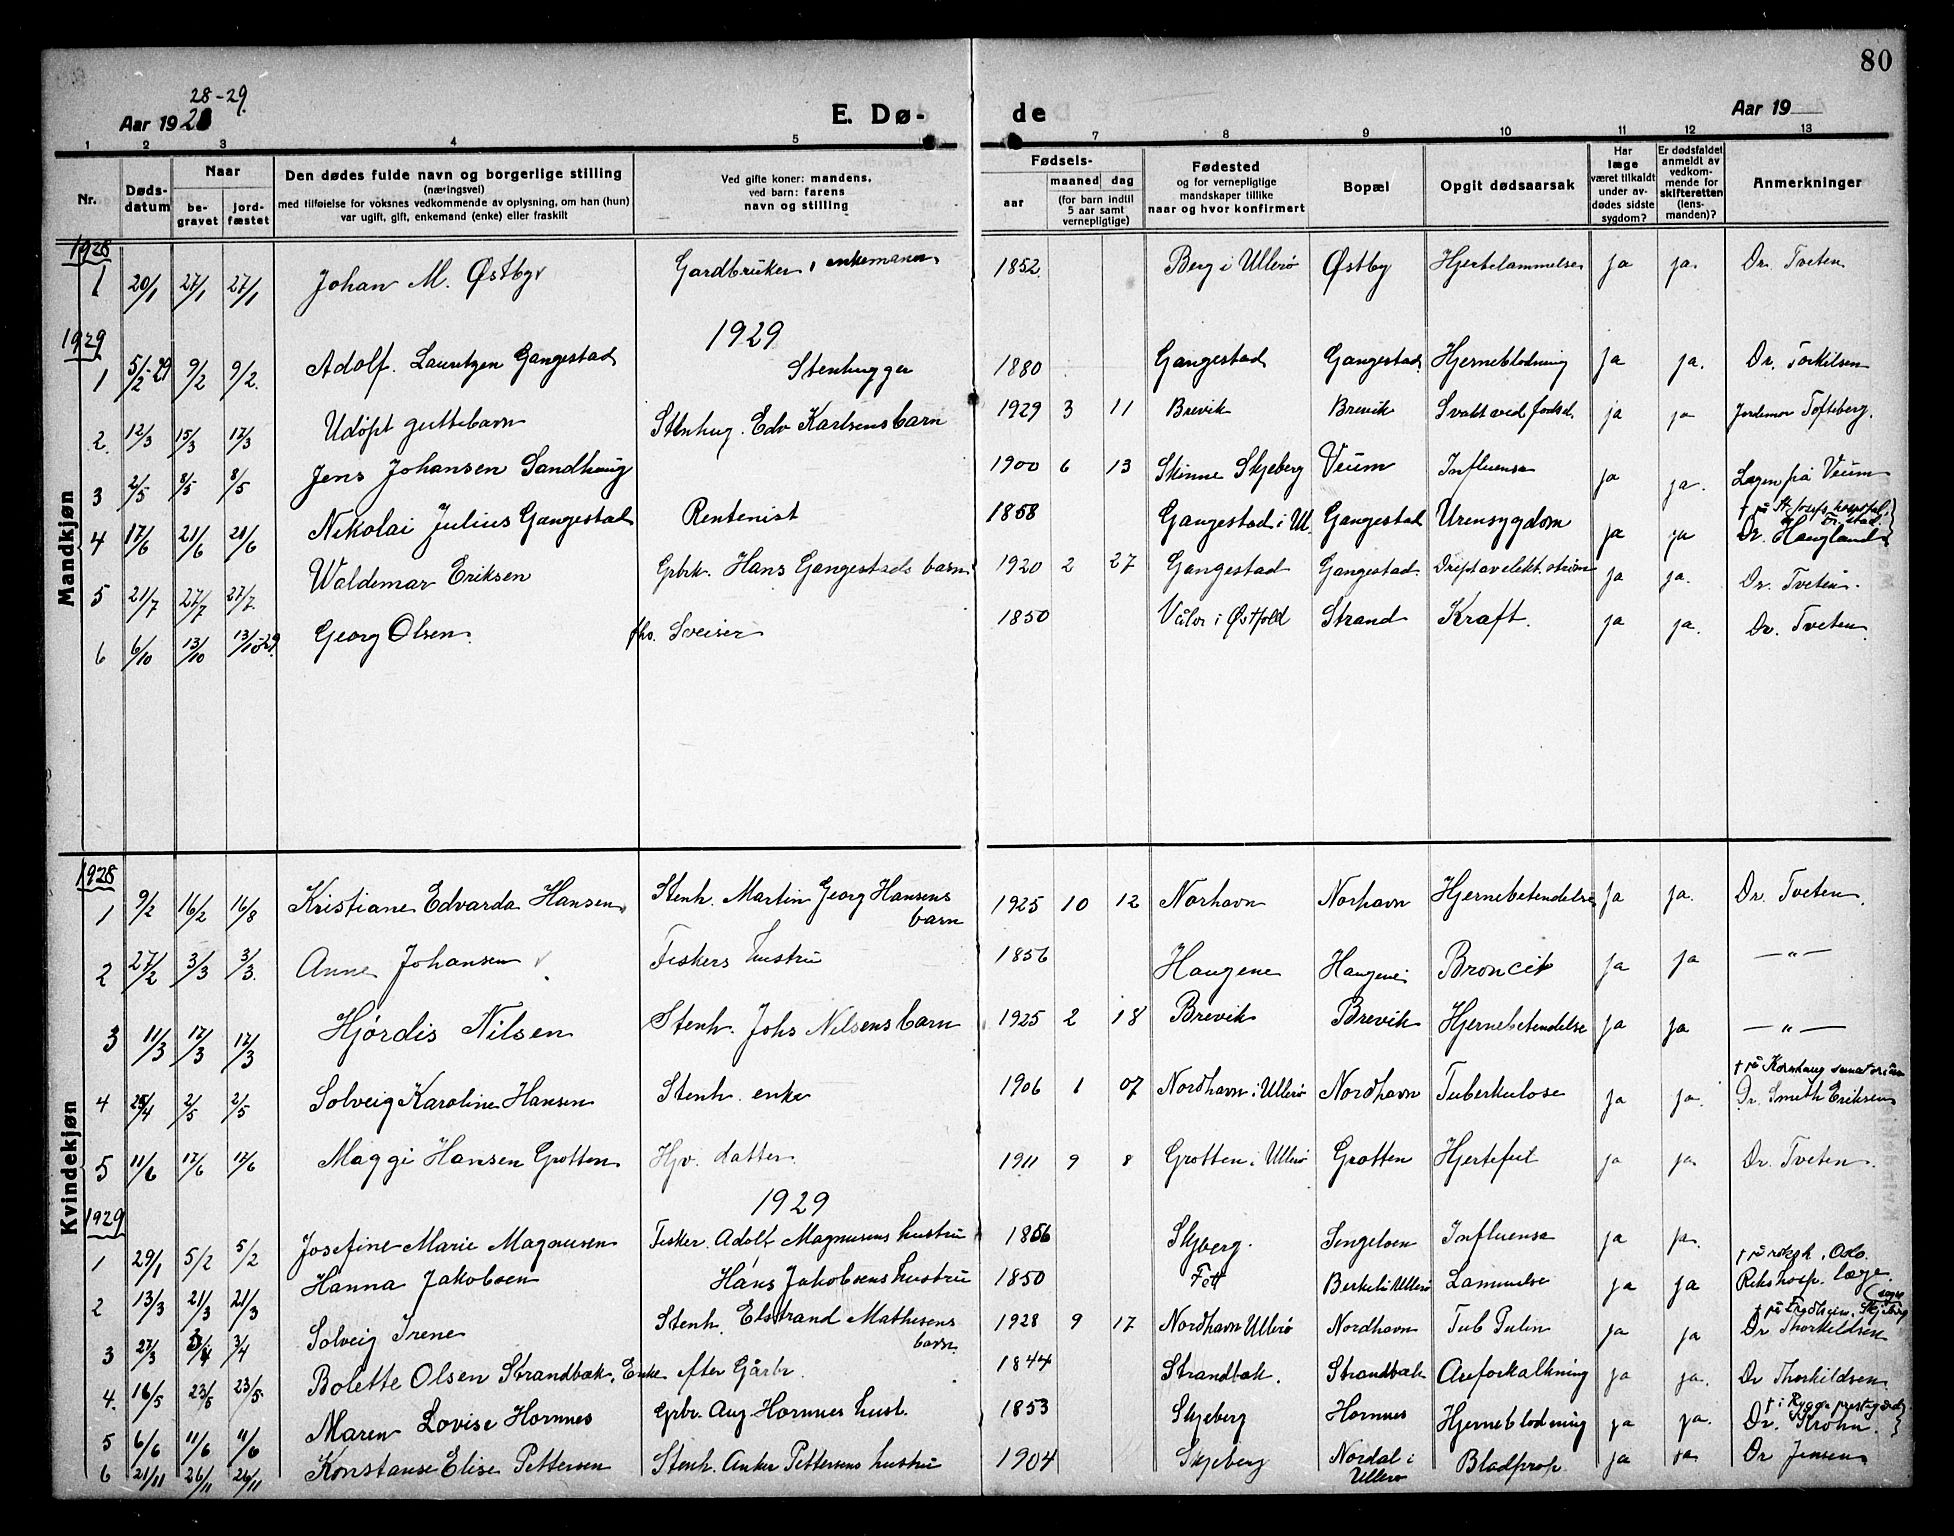 80
28-29
Aar 192
E. Dø-
de
Aar 19
1 2 3 4 5 7 8 9 10 11 12 13
Nr.
Døds-
datum
Naar
be-
gravet
jord-
fæstet
Den dødes fulde navn og borgerlige stilling
(næringsvei)
med tilføielse for voksnes vedkommende av oplysning, om han (hun)
var ugift, gift, enkemand (enke) eller fraskilt
Ved gifte koner: mandens,
ved barn: farens
navn og stilling
Fødsels-
aar
maaned dag
(for barn indtil
5 aar samt
vernepligtige)
Fødested
og for vernepligtige
mandskaper tillike
naar og hvor konfirmert
Bopæl
Opgit dødsaarsak
Har
læge
været tilkaldt
under av-
dødes sidste
sygdom?
Er dødsfaldet
anmeldt av
vedkom-
mende for
skifteretten
(lens-
manden)?
Anmerkninger
Mandkjøn
1928
1 20/1 27/1 27/1 Johan M. Østby Gardbruker, enkemann 1852 Berg i Ullerø Østby Hjertelammelse ja ja. Dr. Tveten
1929
1929
1 5/2-29 9/2 9/2. Adolf Lauritzen Gangestad Stenhugger 1880 Gangestad Gangestad Hjerneblødning ja ja. Dr. Torkilsen
2. 12/3 15/3 17/3 Udøpt guttebarn Stenhug. Edv Karlsens barn 1929 3 11 Brevik Brevik Svakt ved fødsel ja ja Jordemor Tofteberg.
3 2/5 8/5 8/5 Jens Johansen Sandhaug 1900 6 13 Skinne Skjeberg Veum Influensa ja ja. Lægen på Veum
4 17/6 21/6 21/6 Nikolai Julius Gangestad Rentenist 1858 Gangestad i Ul. Gangestad Urensygdom ja ja † på St. Josefs hospital
Fr.stad.
Dr. Haugland
5 21/7 27/7 27/7. Waldemar Eriksen Grbrk. Hans Gangestads barn 1920 2 27 Gangestad Gangestad. Drept av elekt. strøm ja ja. Dr. Tveten.
6 6/10 13/10 13/10-29. Georg Olsen. fhv. Sveiser 1850 Våler i Østfold Strand Kræft. ja ja. Dr. Tveten.
Kvindekjøn
1928
1 9/2 16/2 16/8 Kristiane Edvarda Hansen Stenh. Martin Georg Hansens
barn 1925 10 12 Norhavn Norhavn Hjernebetendelse ja ja. Dr. Tveten
2 27/2 3/3 3/3. Anne Johansen Fiskers hustru 1856 Haugene Haugene Broncit ja ja —"—
3 11/3 17/3 17/3 Hjørdis Nilsen Stenh. Johs Nilsens barn 1925 2 18 Brevik Brevik Hjernebetendelse ja ja —"—
4 25/4 2/5 2/5 Solveig Karoline Hansen Stenh. enke 1906 1 07 Nordhavn i Ullerø Nordhavn Tuberkulose ja ja. † på Kornhaug sanatorium
Dr. Smith Eriksen
5 11/6 17/6 17/6 Maggi Hansen Grotten Hjv. datter. 1911 9 8 Grotten i Ullerø Grotten Hjertefeil ja ja Dr. Tveten.
1929
1929
1 29/1 5/2 5/2 Josefine Marie Magnusen Fisker. Adolf Magnusens hustru 1856 Skjeberg. Singeløen Influensa ja ja.
2 13/3 21/3 21/3 Hanna Jakobsen Hans Jakobsens hustru 1850 Fett Berkeli Ullerø Lammelse ja ja † på riksh. Oslo.
Rikshosp. læge.
3 27/3 3/4 3/4 Solveig Irene Stenh. Elstrand Mathisens
barn. 1928 9 17 Nordhavn Ullerø Nordhavn Tub Pulm ja ja † på Fredheim, Skjeberg
Dr Thorkildsen
4. 16/5 23/5 23/5. Bolette Olsen Strandbak, Enke efter Gårbr. 1844 Strandbak. Strandbak Åreforkalkning ja ja. Dr Thorkildsen.
5 6/6 11/6 11/6 Maren Lovise Hornnes Grbr. Aug Hornnes hust. 1853 Skjeberg Hornnes Hjerneblødning ja ja. † i Rygge prestegjeld
Dr. Krohn.
6 21/11 26/11 26/11 Konstanse Elise Pettersen Stenh. Anker Pettersens hustru 1904 Skjeberg Nordal i
Ullerø Blodprop ja ja Dr Jensen